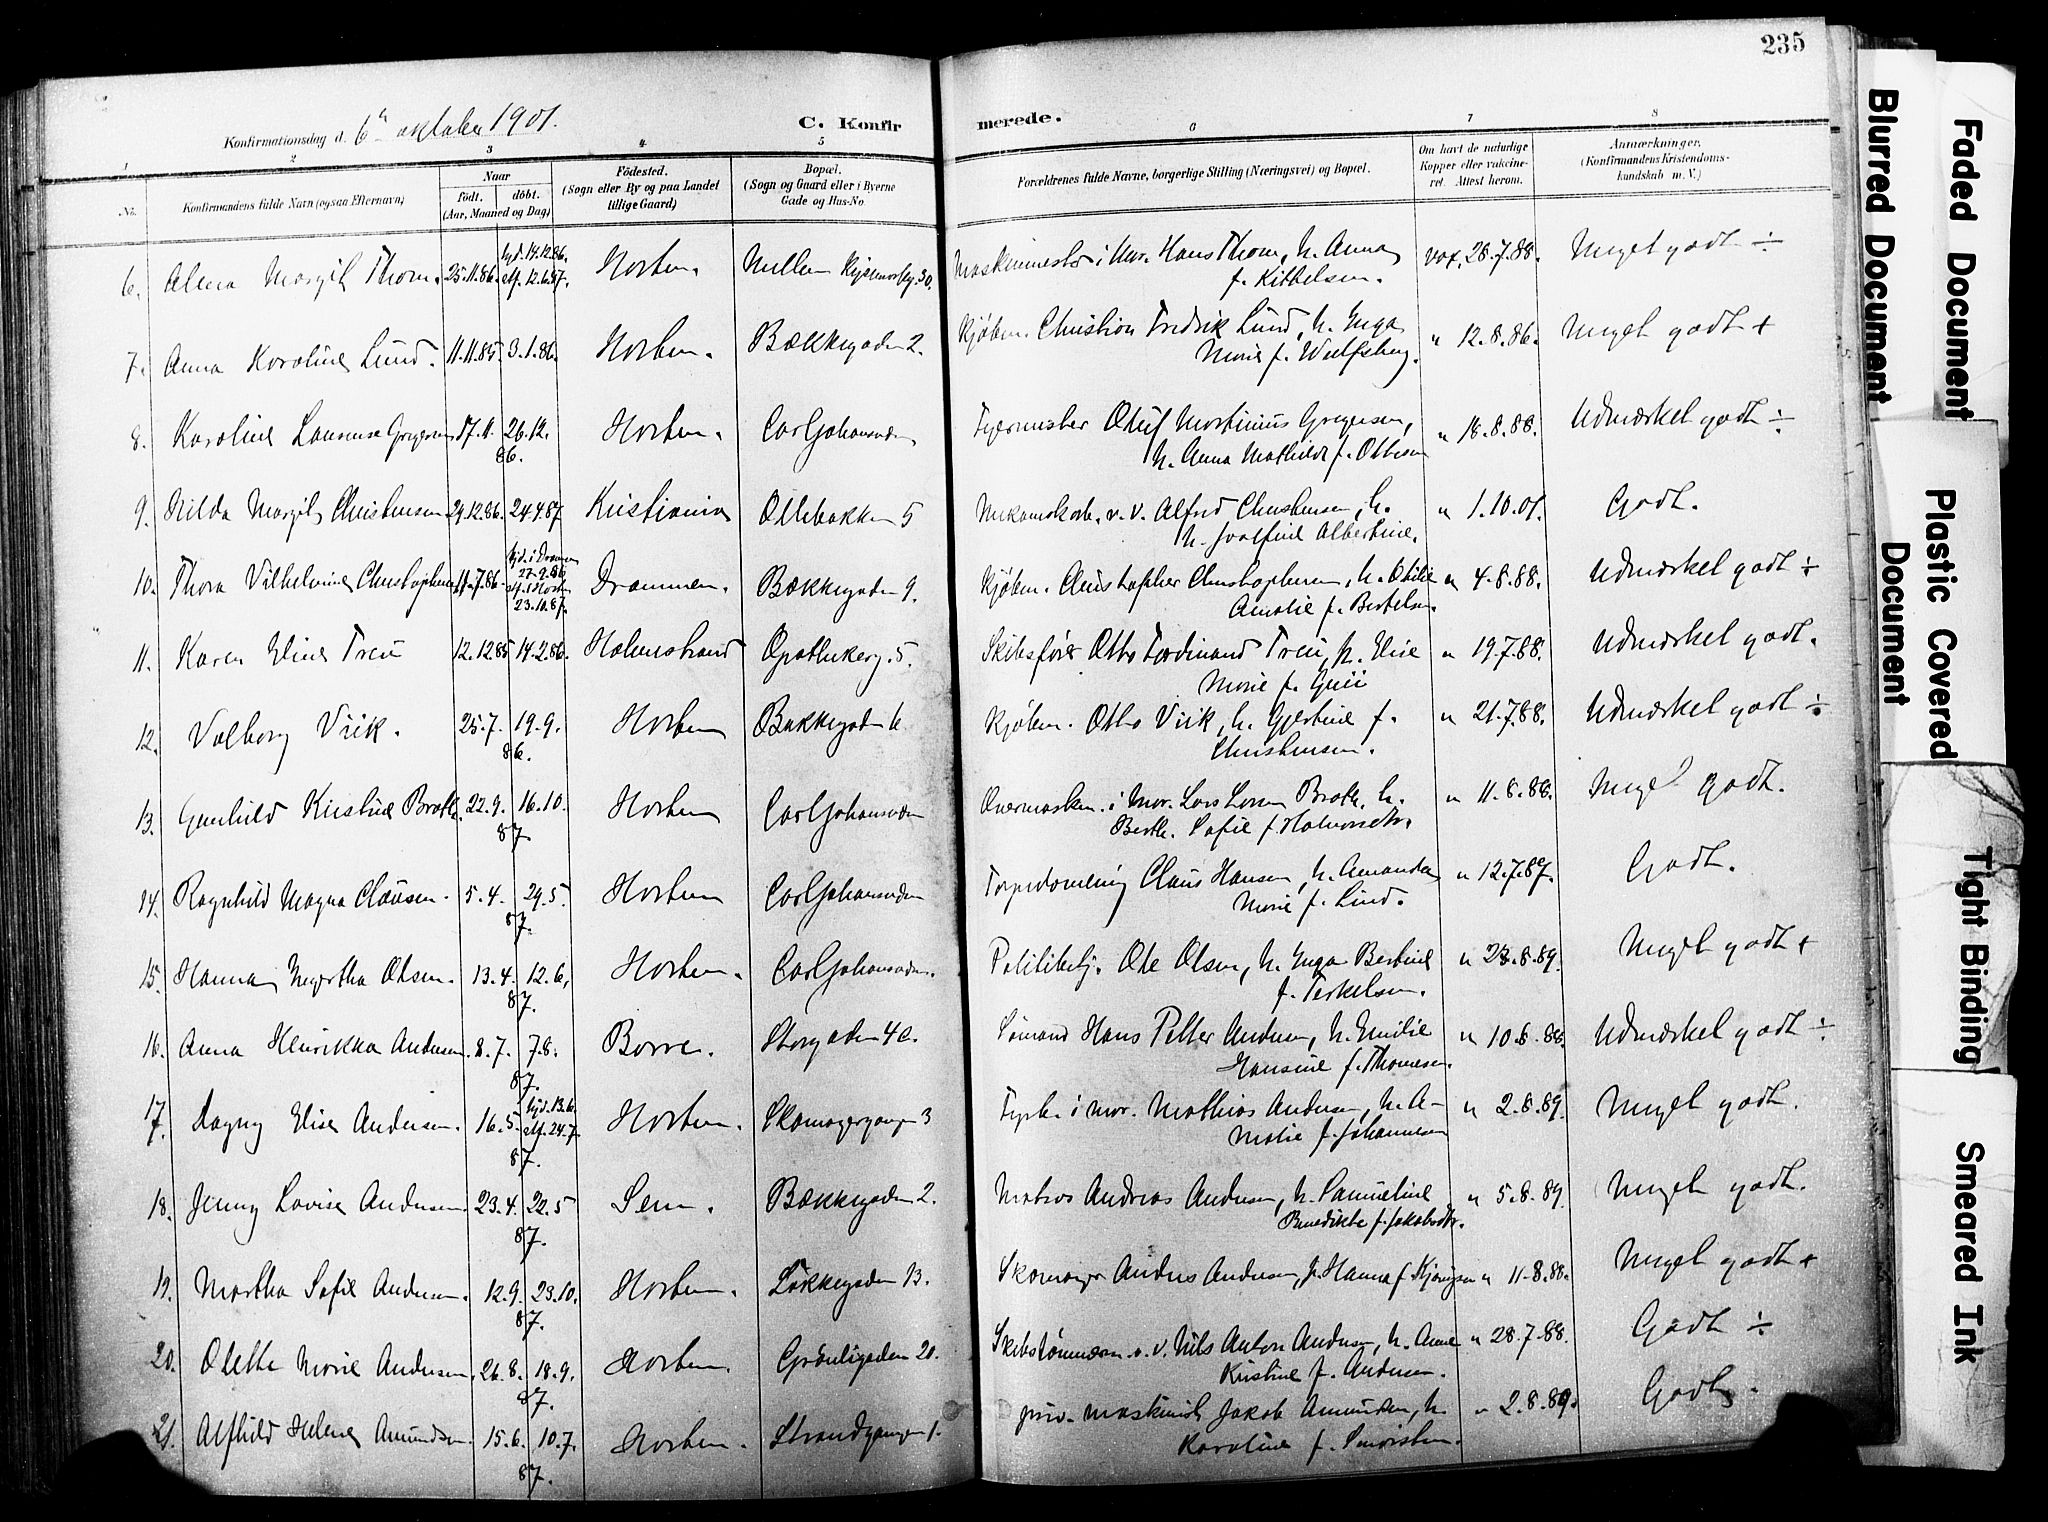 235
Konfirmationsdag d. 6te oktober 1901.
C. Konfirmerede.
1 2 3 4 5 6 7 8
No.
Konfirmandens fulde Navn (ogsaa Efternavn)
Naar
født. døbt.
(Aar, Maaned og Dag)
Fødested.
(Sogn eller By og paa Landet
tillige Gaard)
Bopæl.
(Sogn og Gaard eller i Byerne
Gade og Hus-No.
Forældrenes fulde Navne, borgerlige Stilling (Næringsvei) og Bopæl.
Om havt de naturlige
Kopper eller vaccine-
ret. Attest herom.
Anmærkninger.
(Konfirmandens Kristendoms-
kundskab m. V.)
6. Alma Margit Thom. 25.11.86. hjd. 14.12.86. Horten. Mellem 30. Maskinmester i Mar. Hans Thom, h. Anna vax. 28.7.88. Meget godt ÷
stf. 12.6.87.
f. Kittelsen.
7. Anna Karoline Lund. 11.11.85. 3.1.86. Horten. Bækkegaden 2. Kjøbm. Christian Fredrik Lund, h. Inga " 12.8.86. Meget godt +
Marie f. Wulfsberg.
8. Karoline Laurense Gregersen 17.11. 26.12. Horten. Carljohansværn Oluf Martinius Gregersen, " 18.8.88. Udmærket godt ÷
86.
h. Anna Mathilde f. Ottesen
9. Hilda Margit Christensen 29.12.86. 24.4.87 Kristiania Ollebakken 5 v. V. Alfred Christensen, h. " 1.10.01. Godt.
h. Albertine.
10. Thora Vilhelmine Christophersen 11.7.86. hjd. i Drammen Drammen. Bækkegaden 9. Kjøbm. Christopher Christophersen, h. Otilie " 4.8.88. Udmærket godt ÷
27.9.86
stf. i Horten
23.10.87.
Amalie f. Bertelsen.
11. Karen Eline Treu 12.12.85 14.2.86. Holmestrand Apothekerg. 5. Skibsfører Otto Ferdinand Treu, h. Elise " 19.7.88. Udmærket godt.
Marie f.
12. Valborg Viik. 25.7. 19.9. Horten Bækkegaden 6 Kjøbm. Otto Viik, h. Gjertine f. " 21.7.88. Udmærket godt ÷
86.
Christensen.
13. Gunhild Kristine Bratli. 22.9. 16.10. Horten Carljohansværn i Mar. h. " 11.8.88. Meget godt.
87.
Berth. Sofie f. Halvorsdtr.
14. Ragnhild Magna Clausen. 5.4. 29.5. Horten Carljohansværn Claus Hansen, h. Amanda " 12.7.87. Godt.
87.
Marie f. Lind.
15. Hanna Myrtha Olsen. 13.4. 12.6. Horten. Carljohansværn. Politibetj. Ole Olsen, h. Inga Bertine " 23.8.89. Meget godt +
87.
f. Terkelsen.
16. Anna Henrikka Andersen. 8.7. 7.8. Borre. Storgaden 4c. Sømand Hans Petter Andersen, h. Emilie " 10.8.88. Udmærket godt ÷
87.
Hansine f. Thomesen.
17. Dagny Elise Andersen. 16.5. hjd. 13.6. Horten. Skomagergangen 3 i Mar. Mathias Andersen, h. A- " 2.8.89. Meget godt.
stf. 24.7.
87.
malie f. Johannesen
18. Jenny Lovise Andersen. 23.4. 22.5 Sem. Bækkegaden 2. Matros Andreas Andersen, h. Samueline " 5.8.89. Meget godt.
87.
Benedikte f. Jakobsdtr.
19. Martha Sofie Andersen. 12.9. 23.10. Horten. Løkkegaden 13. Skomager Anders Andersen, h. Hanna f. " 11.8.88. Meget godt +
87.
20. Olette Marie Andersen. 26.8. 18.9. Horten. Grønligaden 20. Skibstømmerm. v. V. Nils Anton Andersen, h. Anne " 28.7.88. Godt ÷
87.
Kristine f. Andersen.
21. Alfhild Helene Amundsen. 15.6. 10.7. Horten. Strandgangen 1. priv. maskinist Jakob Amundsen, h. " 2.8.89. Godt.
87.
Karoline f.
Faded Document
Blurred Document
Plastic Covered
Document
Tight Binding
Smeared Ink